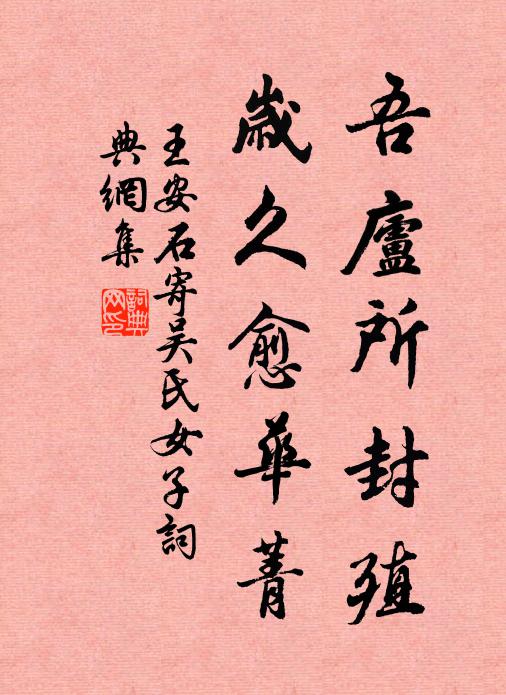 吾廬所封殖
歲久愈華菁
王安石寄吳氏女子詞
典網集
詞典網印